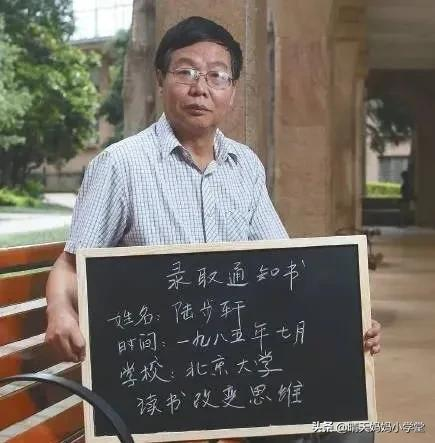 录取通知书
姓名：陆步轩
时间：一九八五年七月
学校：北京大学
读书改变思维
头条@晴天妈妈小学堂